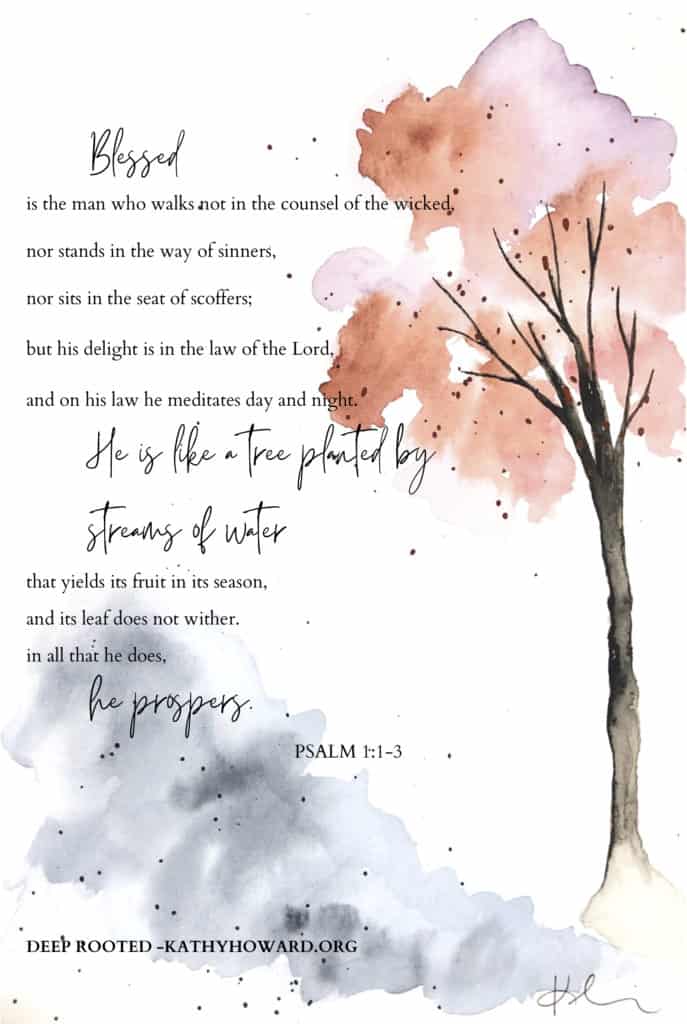 Blessed
is the man who walks not in the counsel of the wicked,
nor stands in the way of sinners,
nor sits in the seat of scoffers;
but his delight is in the law of the Lord,
and on his law he meditates day and night.
He is like a tree planted by
streams of water
that yields its fruit in its season,
and its leaf does not wither.
in all that he does,
he prospers.
PSALM 1:1-3
DEEP ROOTED -KATHYHOWARD.ORG